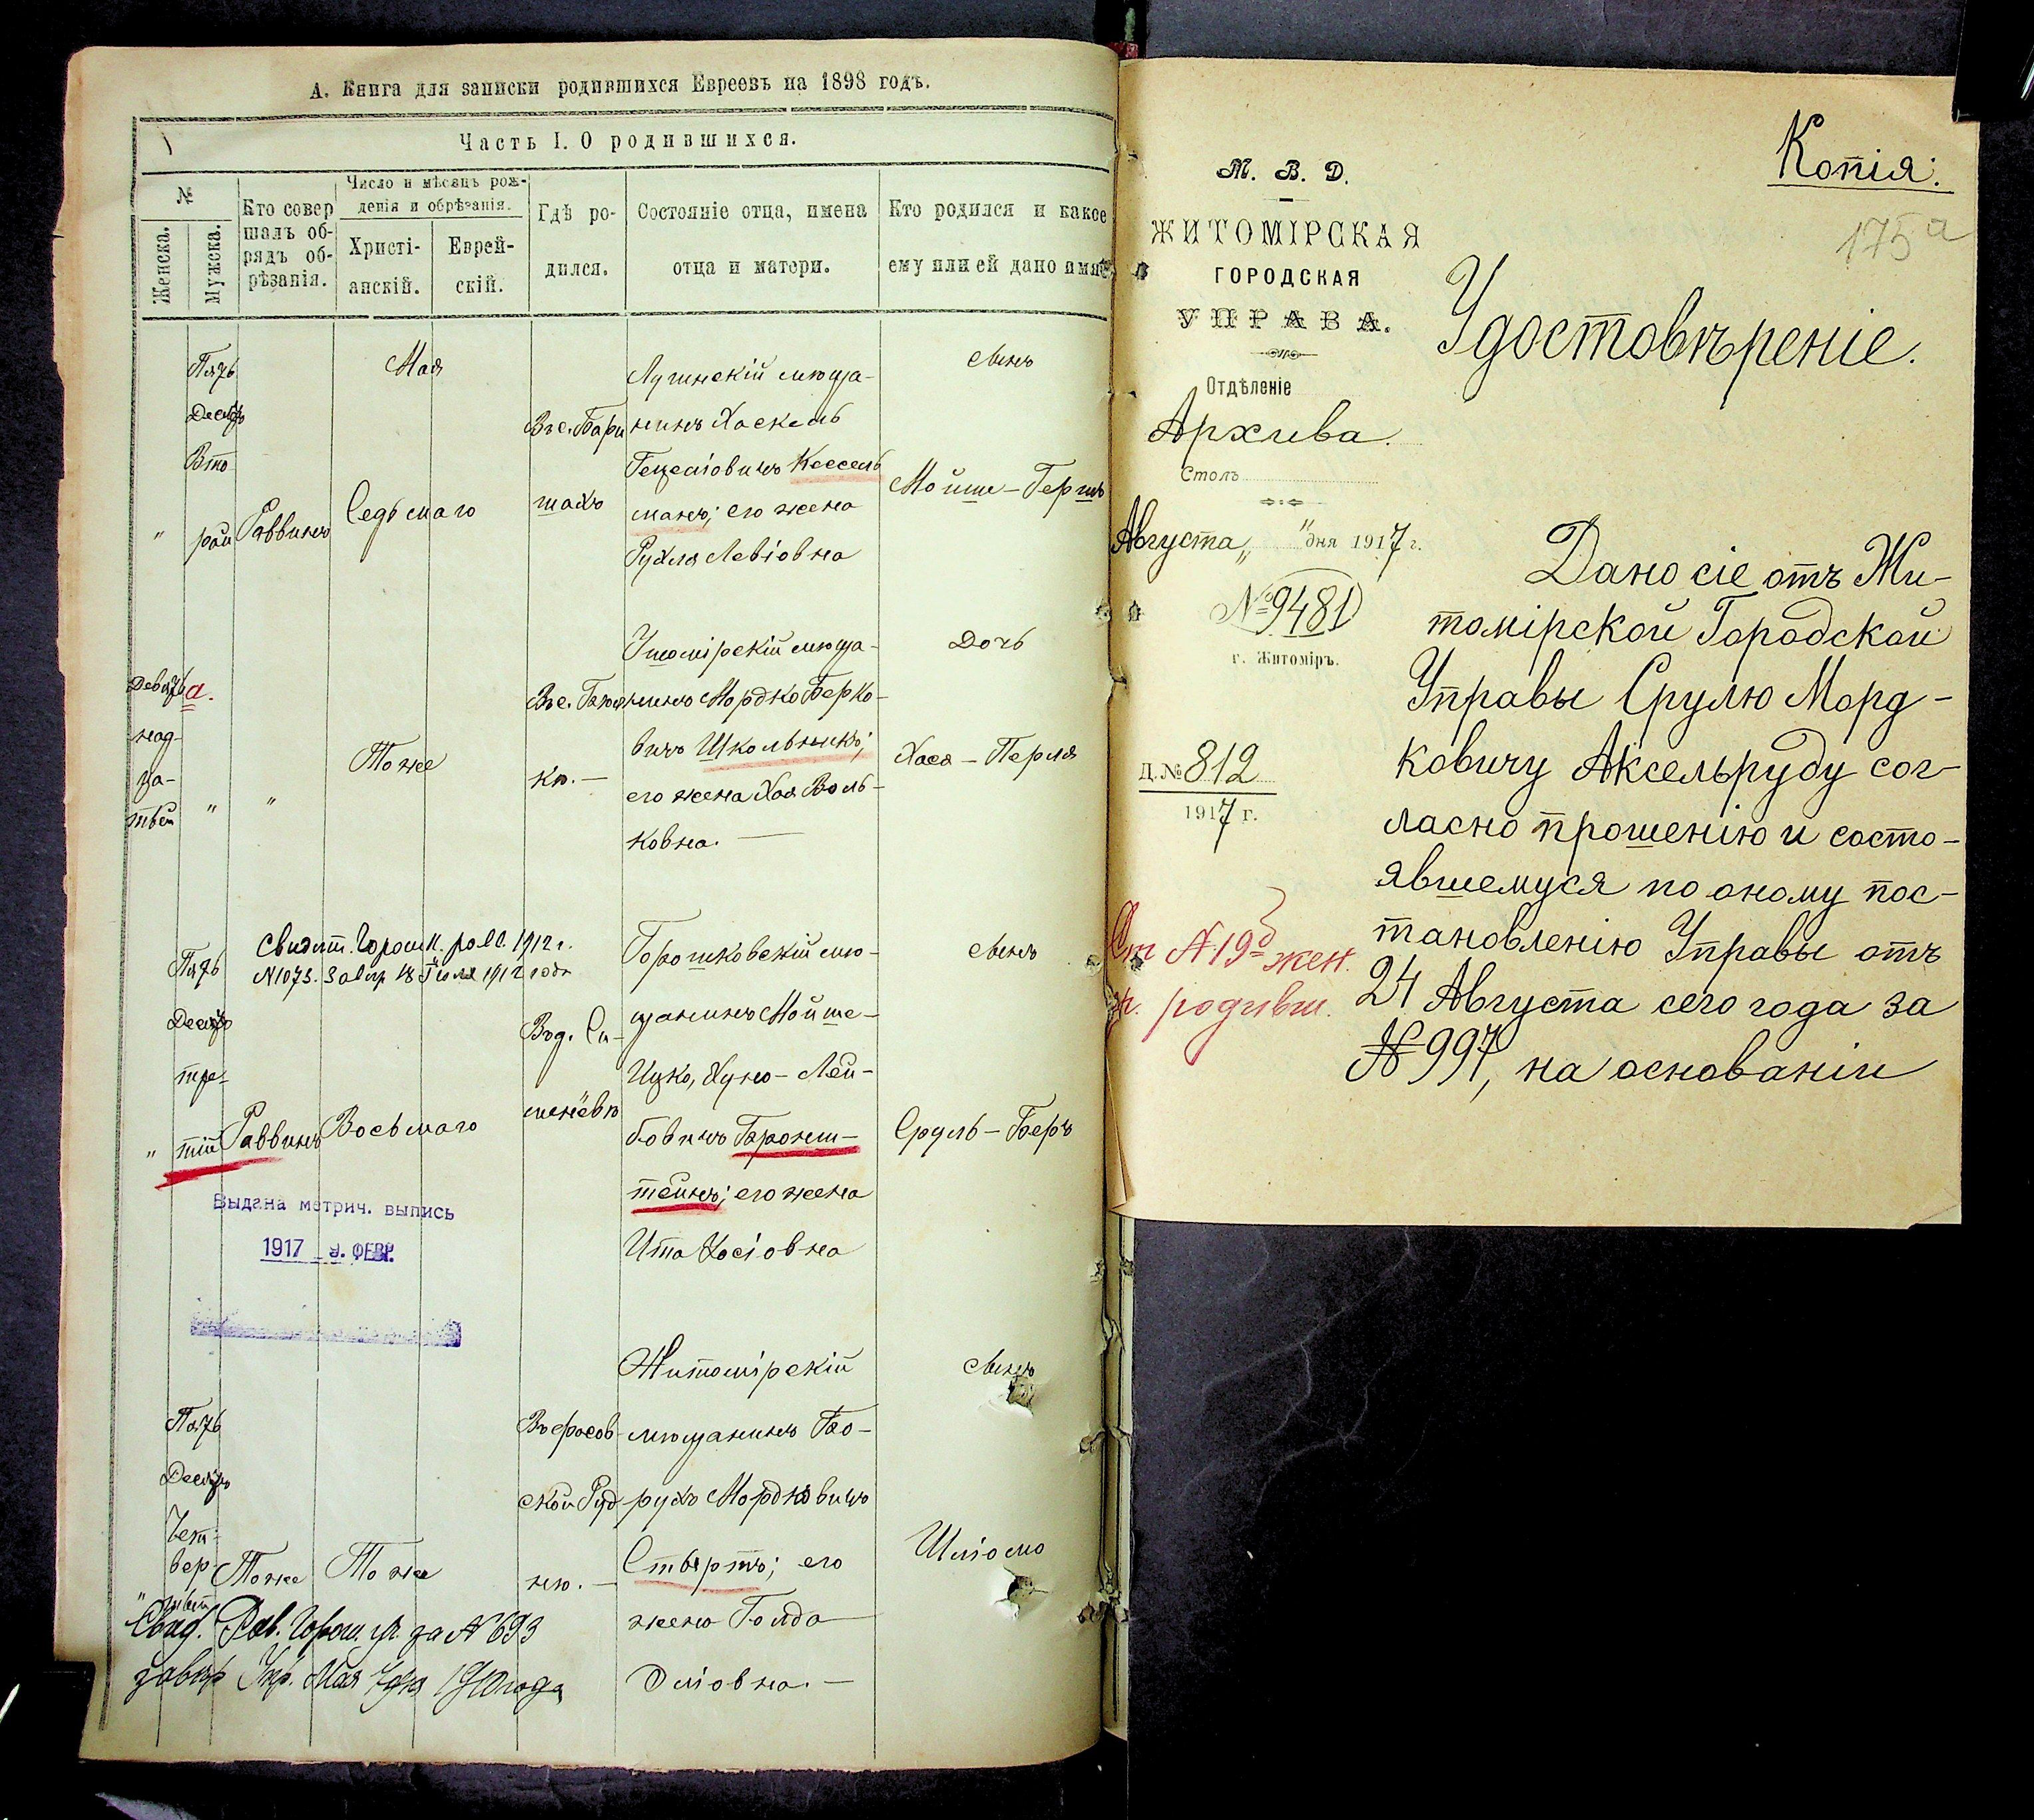 А. Книга для записки родившихся Евреевъ на 1898 годъ.
Часть I. О родившихся.
№
Женска.
Мужска.
Кто совершалъ обрядъ обрѣзанія.
Число и мѣсяцъ рожденія и обрѣзанія.
Христіанскій.
Еврейскій.
Гдѣ родился.
Состояніе отца, имена отца и матери.
Кто родился и какое ему или ей дано имя
Пять
Десятъ
Вто
рой
"
Раввинъ
Мая
Седьмаго
Въ с. Бари
шахъ
Лугинскій мѣща-
нинъ Хаскель
Гецеліовичъ Кессель
манъ; его жена
Рухля Левіовна
сынъ
Мойше-Гершъ
Девять
а.
над-
ца-
тый
"
"
Тоже
Въ с.
кѣ. —
Ушомірскій мѣща-
нинъ Мордко Берко-
вичъ Школьникъ;
его жена Хая Воль-
ковна. —
Дочь
Хася - Перля
Свидѣт. Горошк. равв. 1912 г.
№ 1073. Завѣр 18 Іюля 1912 года
Пять
Десятъ
тре-
тій
"
Раввинъ
Восьмаго
Въ д. Си-
Горошковскій мѣ-
щанинъ Мойше-
Ицко, Хуно-Лей-
бовичъ Бронш-
тейнъ; его жена
Ита Хосіовна
сынъ
Сруль-Беръ
Выдана метрич. выпись
1917 9. ФЕВР.
Пять
Десятъ
Чет-
вер-
тый
"
Тоже
Тоже
Въ фасов-
ской Руд
нѣ. —
Житомірскій
мѣщанинъ Бо-
рухъ Мордковичъ
Ствертъ; его
жена Голда
Эліовна. —
сынъ
Шліомо
Свид. Рав. Горош. уч. за № 693
завѣр Упр. Мая 1910 года
М. В. Д.
ЖИТОМІРСКАЯ
ГОРОДСКАЯ
УПРАВА.
Отдѣленіе
Архива.
Столъ
Августа „ " дня 1917 г.
№ 9481
г. Житоміръ.
Д. № 812
1917 г.
Копія:
175 а
Удостовѣреніе.
Дано сіе отъ Жи-
томірской Городской
Управы Срулю Морд-
ковичу Аксельруду сог-
ласно прошенію и состо-
явшемуся по оному пос-
тановленію Управы отъ
24 Августа сего года за
№ 997, на основаніи
Ст № 19 а жен.
ч. родивш.